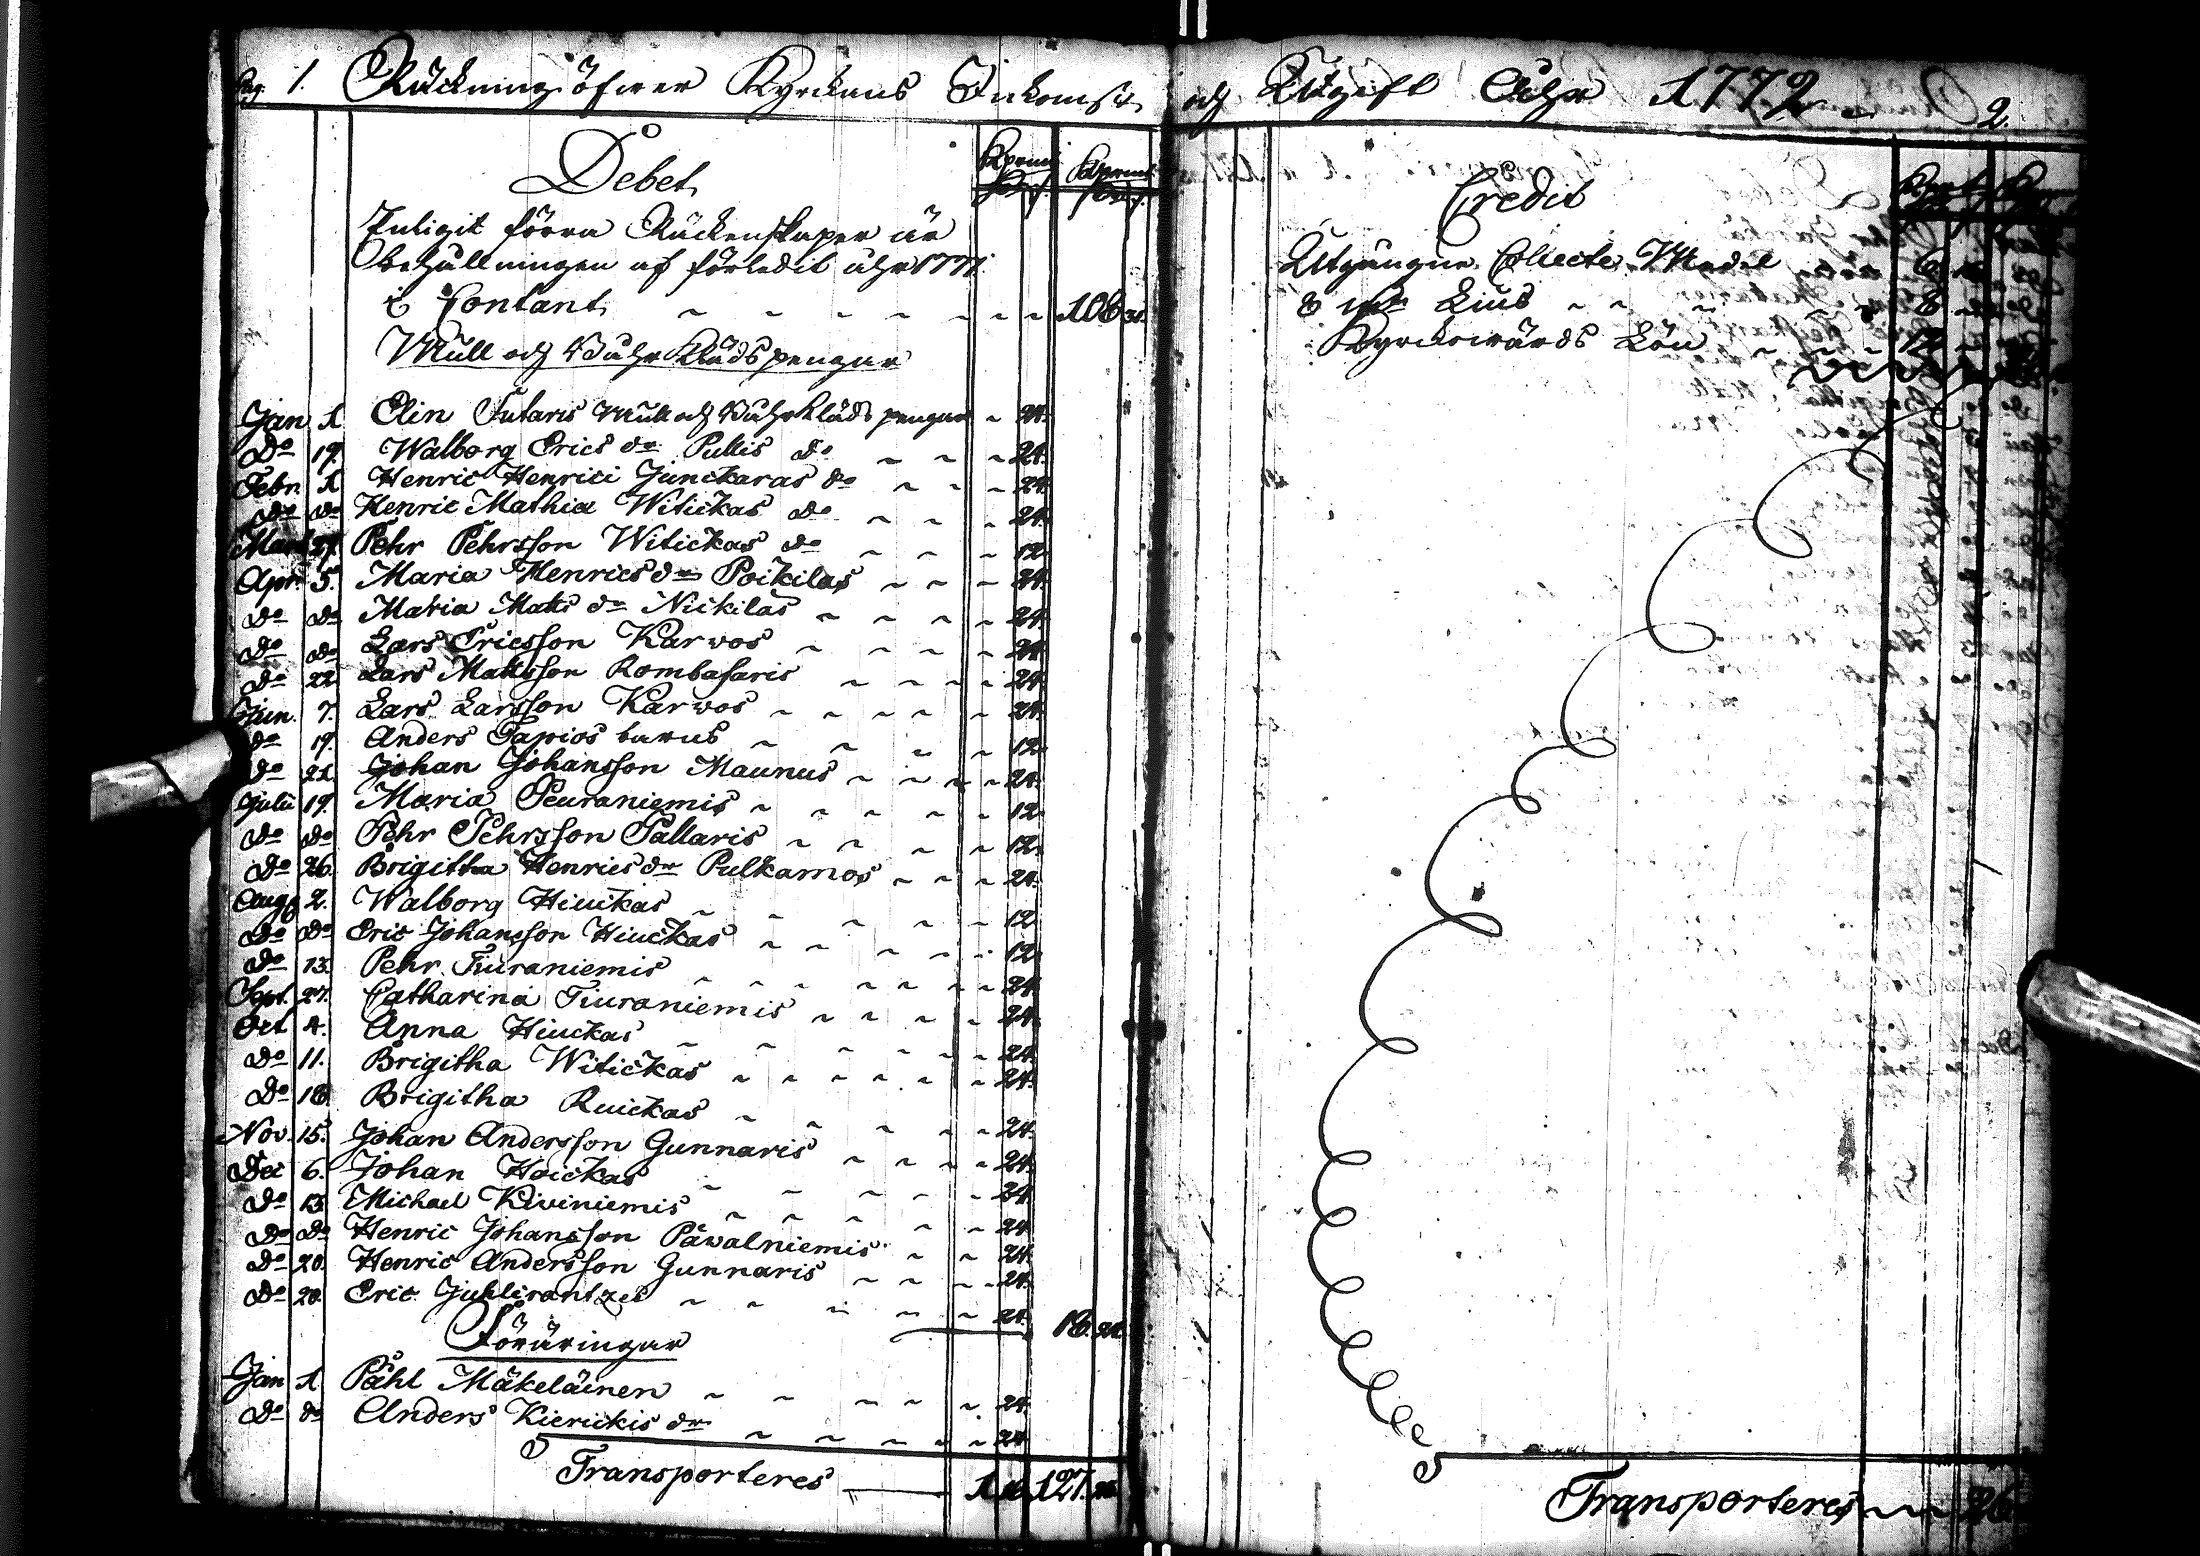 Pag. 1. Räckning öfwer Kyrckans Inkomst och Utgift Åhr 1772 2.
Debet
Kprmt Kprmt
Enligit förra Räckenskapen är
behållningen af förledit åhr 1771
i Contant 108
Mull och Bahrklädspengar
Jan 1 Elin Sutaris Mull och Bahrkläds pengar 24.
Do 19. Walborg Erics dr Pullis do 24.
Febr. 1 Henric Henrici Junckaras do 24.
Do Do Henric Mathiæ Witickas do 24.
Mart 27. Pehr Pehrsson Witickas do 12
Apr. 5. Maria Henrics dr Poikilas 24.
Do Do Maria Matts dr Nickilas 24.
Do Do Lars Ericsson Karwos 24
Do 22 Lars Mattsson Rombasaris 24.
Jun. 7. Lars Larsson Karwos 24.
Do 19. Anders Tapios barns 12
Do 21 Johan Johansson Maunus 24.
Julii 19. Maria Peuraniemis 12
Do Do Pehr Pehrsson Pallaris 12.
Do 26. Brigitha Henrics dr Pulkamos 24.
Aug 2. Walborg Hiuckas 12
Do Do Eric Johansson Hiuckas 12.
Do 13. Pehr Tiuraniemis 24
Sept. 27. Catharina Tiuraniemis 24.
Oct 4. Anna Hiuckas 24.
Do 11. Brigitha Witickas 24.
Do 18 Brigitha Ruickas 24.
Nov. 15. Johan Andersson Gunnaris 24.
Dec 6. Johan Hoickas 24.
Do 13. Michael Kiviniemis 24
Do Do Henric Johansson Päwalniemis 24.
Do 20. Henric Andersson Gunnaris 24.
Do 20. Eric Juhlirantzes 24. 18. 24.
Föräringar
Jan 1 Påhl Mäkeläinen 24.
Do do Anders Kierickis dr 24
Transporteres 127.
Credit
Utgångne Collecte Medel 6
8 Ljus 8
Kyrckowärds Lön 12
Transporteres 26